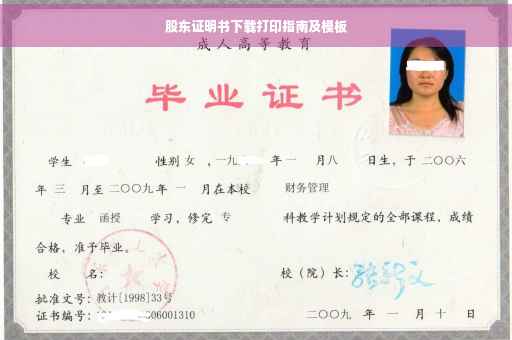 股东证明书下载打印指南及模板
成人高等教育
毕业证书
学生 性别 女 ，一九 年 一 月 八 日生，于 二〇〇六
年 三 月至 二〇〇九 年 一 月在本校 财务管理
专业 函授 学习，修完 专 科教学计划规定的全部课程，成绩
合格，准予毕业。
校 名： 校（院）长：
批准文号：教计[1998]33号
证书编号： 06001310 二〇〇九 年 一 月 十 日